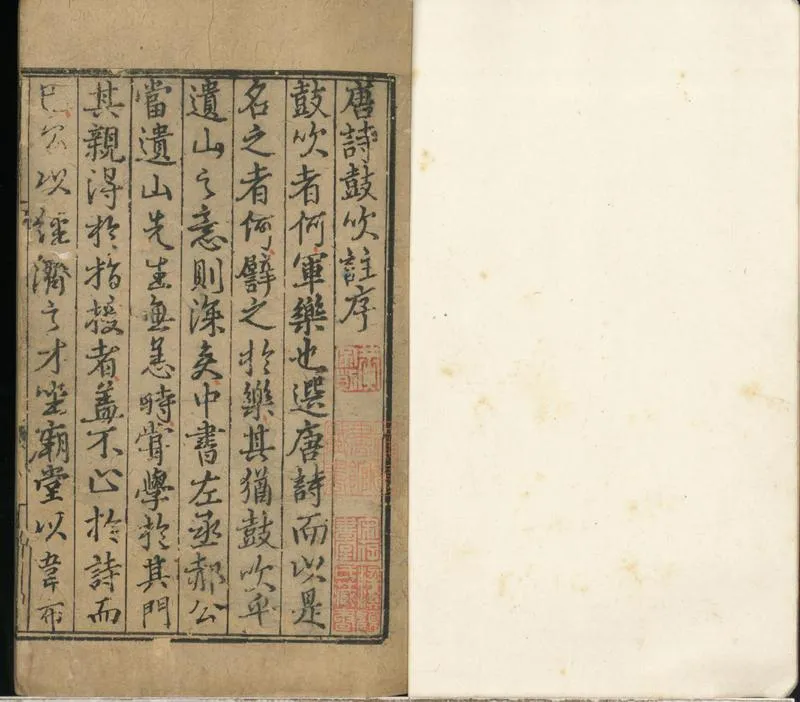 唐詩鼓吹註序
鼓吹者何軍樂也選唐詩而以是
名之者何譬之於樂其猶鼓吹乎
遺山之意則深矣中書左丞郝公
當遺山先生無恙時嘗學於其門
其親得於指授者蓋不止於詩而
已公以經濟之才坐廟堂以韋布